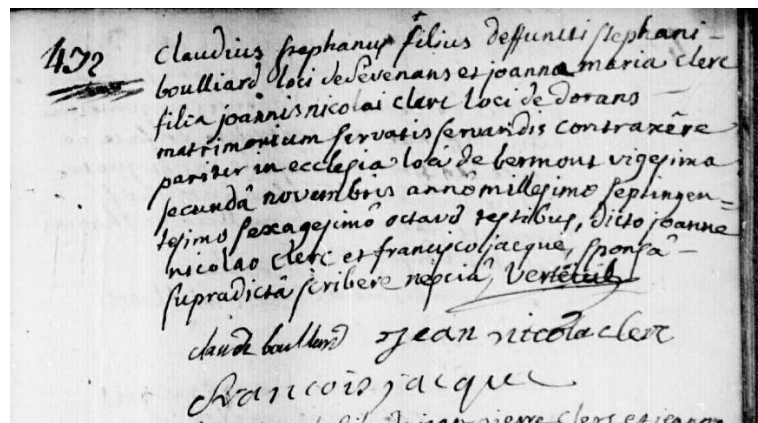 432
claudius stephanus filius deffuncti stephani -
boulliard loci de Sevenans et joanna maria clerc
filia joannis nicolai clerc loci de dorans -
matrimonium servatis servandis contraxêre
pariter in ecclesia loci de bermont vigesima
secundâ novembris annô millesimo septingen=
tesimo sexagesimô octavô testibus, dicto joanne
nicolao clerc et francisco jacque, sponsâ -
supradictâ scribere nesciâ,
claude boullard jean nicola clerc
francois jacque
pierre clerc et jeanne